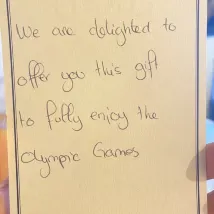 We are delighted to
offer you this gift
to fully enjoy the
Olympic Games